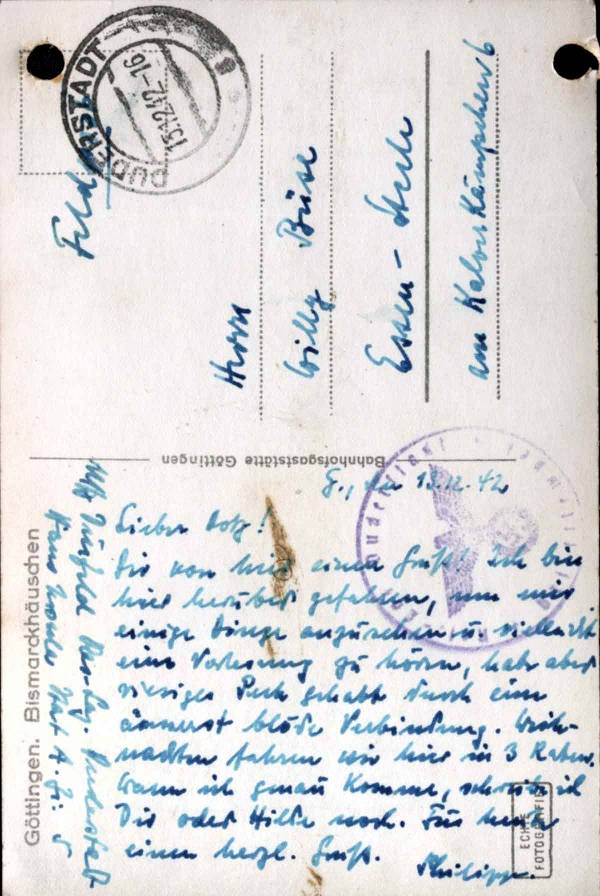 DUDERSTADT
15.12.42.-16
Feld
Herrn
Willy
Essen-
am
Bahnhofsgaststätte Göttingen
Göttingen. Bismarckhäuschen
G., den 13.12.42
Lieber !
Dir von hier einen Gruß! Ich bin
hier herüber gefahren, um mir
einige Dinge anzusehen u. vielleicht
eine Vorlesung zu hören, habe aber
riesiges Pech gehabt durch eine
äusserst blöde Verbindung. Weih-
nachten fahren wir hier in 3 Raten.
Wann ich genau komme, schreib ich
Dir oder Hilde noch. Für heute
einen herzl. Gruß.
Philipp.
Duderstadt
ECHTE
FOTOGRAFIE